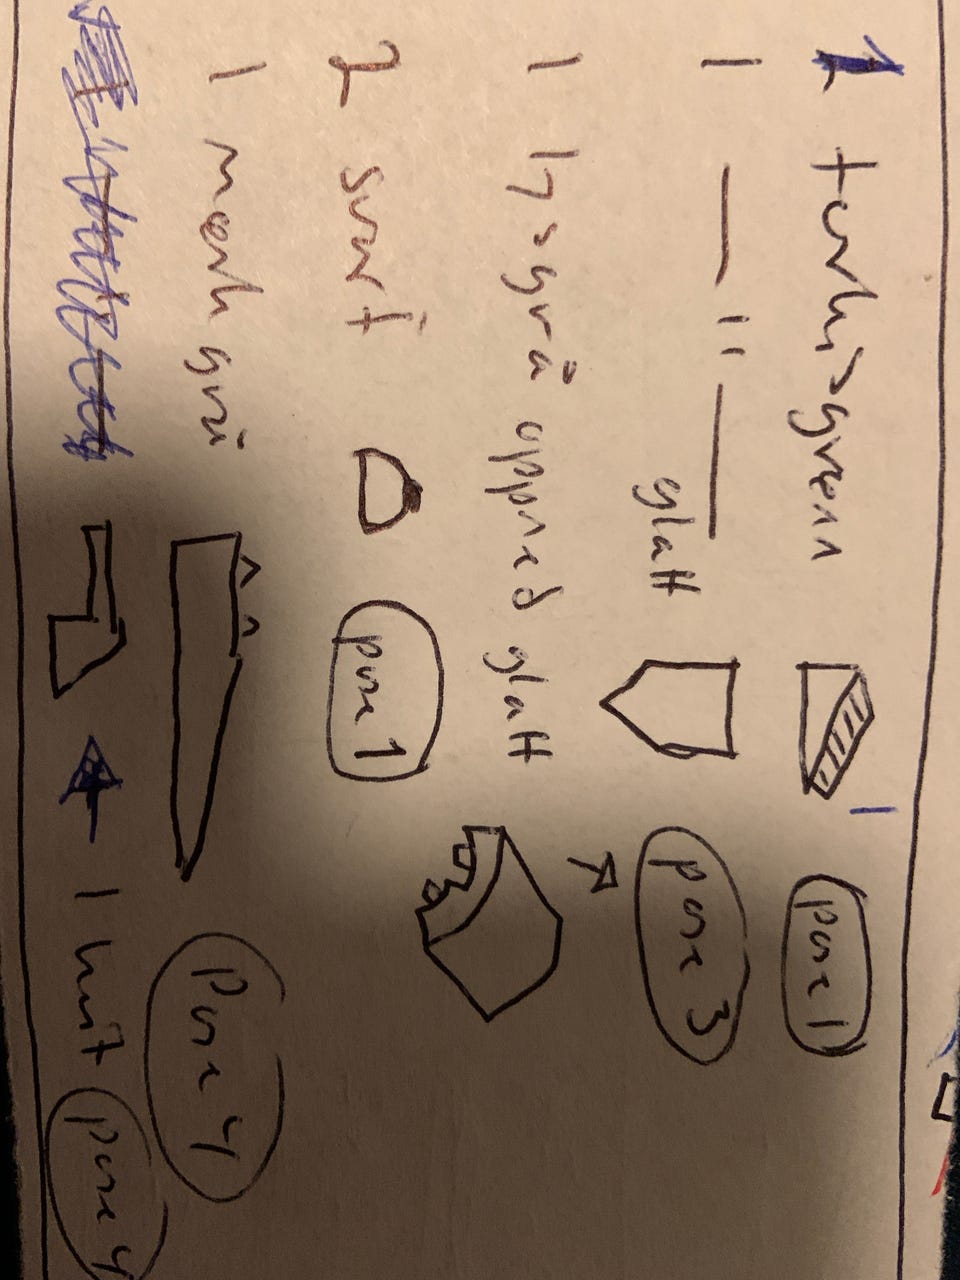 1 turkisgrønn pose 1
1 —"— glatt pose 3
1 lysgrå oppned glatt
2 svart pose 1
1 mørk grå Pose 4
1 hvit pose 4